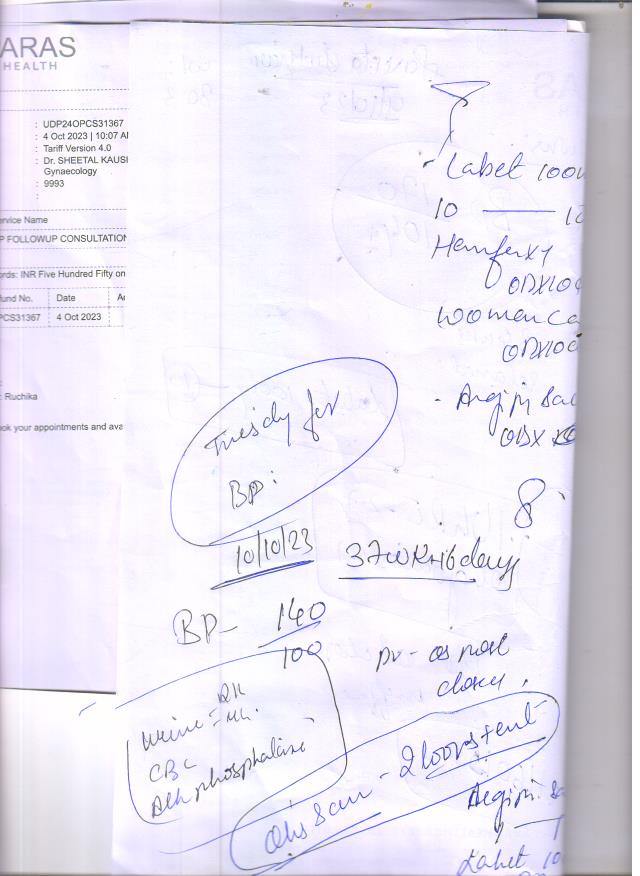 ARAS
HEALTH
: UDP24OPCS31367
: 4 Oct 2023 | 10:07 A
: Tariff Version 4.0
: Dr. SHEETAL KAUSI
Gynaecology
: 9993
:
ervice Name
P FOLLOWUP CONSULTATION
ords: INR Five Hundred Fifty on
und No. Date
PCS31367 4 Oct 2023
:
: Ruchika
ok your appointments and ava
- Labet 100
10
ODX10
ODX10
- Argipi Sac
ODX
Tuesdy for
BP:
8
10/10/23 37wk+6days
BP- 140
100
PV- os post
Urine = R/M
CBC
Alk phosphatase
Obs Scan -
Argipi Sa
Labet 10